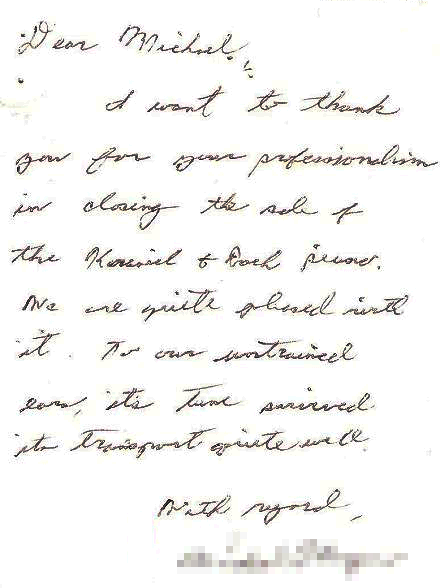 Dear Michael,
I want to thank
you for your professionalism
in closing the sale of
the Kawai & Bach piano.
We are quite pleased with
it. To our untrained
ears, its tune survived
its transport quite well.
With regard,